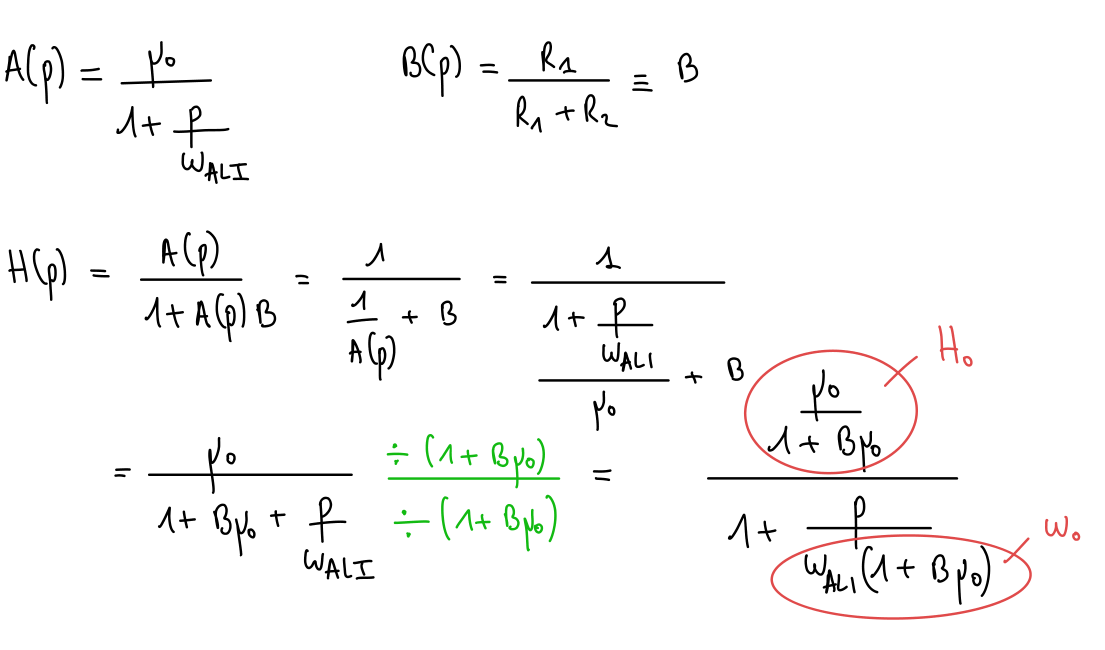 A(p) = μ₀ / (1 + p/ω_ALI)    B(p) = R₁ / (R₁ + R₂) ≡ B
H(p) = A(p) / (1 + A(p) B) = 1 / (1/A(p) + B) = 1 / ((1 + p/ω_ALI)/μ₀ + B)
H₀
= μ₀ / (1 + Bμ₀ + p/ω_ALI)    ÷ (1 + Bμ₀) / ÷ (1 + Bμ₀) = (μ₀ / (1 + Bμ₀)) / (1 + p/(ω_ALI(1 + Bμ₀)))
ω₀